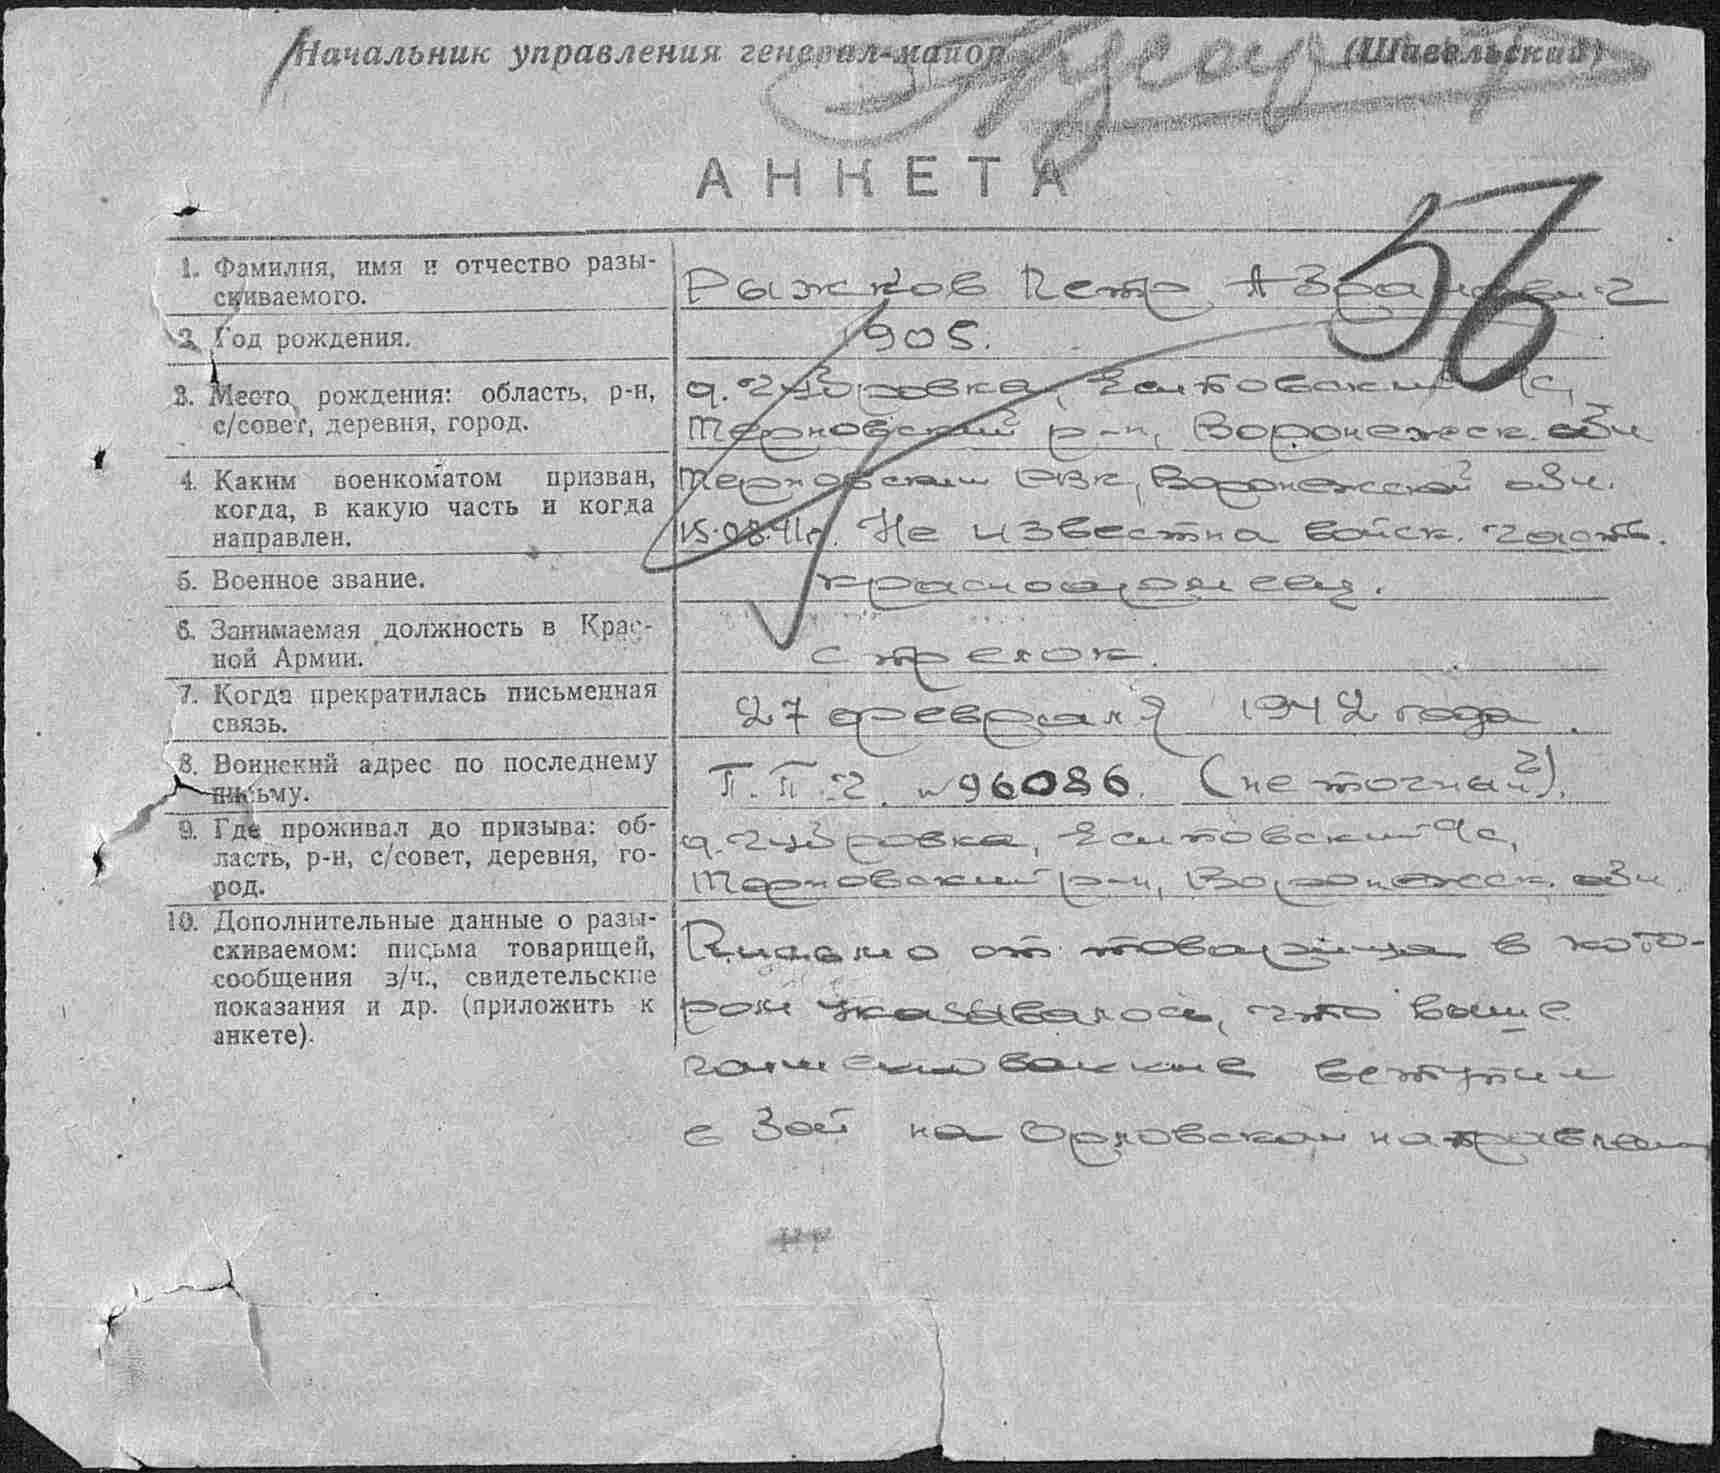 Начальник управления генерал-майор (Шавельский)
АНКЕТА
56
1. Фамилия, имя и отчество разы-
скиваемого.
Рыжков Петр
2. Год рождения.
905.
3. Место рождения: область, р-н,
с/совет, деревня, город.
д. Чубровка, Еситовский с/с,
Терновский р-н, Воронежск. обл
4. Каким военкоматом призван,
когда, в какую часть и когда
направлен.
Терновским РВК, Воронежской обл.
15.08.41г. Не известна войск. часть.
5. Военное звание.
красноармеец.
6. Занимаемая должность в Крас-
ной Армии.
стрелок.
7. Когда прекратилась письменная
связь.
27 февраля 1942 года.
8. Воинский адрес по последнему
письму.
П.П.Ч. № 96086. (не точный).
9. Где проживал до призыва: об-
ласть, р-н, с/совет, деревня, го-
род.
д. Чубровка, Еситовский с/с,
Терновский р-н, Воронежск. обл.
10. Дополнительные данные о разы-
скиваемом: письма товарищей,
сообщения з/ч., свидетельские
показания и др. (приложить к
анкете).
Письмо от товарища в кото-
ром указывалось, что выше
вступил
в бой на Орловском направлении